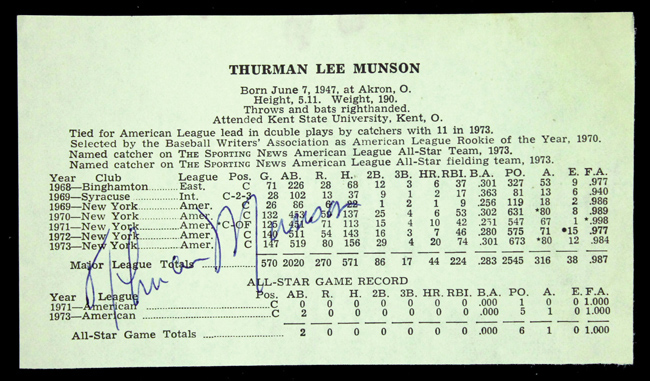 THURMAN LEE MUNSON
Born June 7, 1947, at Akron, O.
Height, 5.11. Weight, 190.
Throws and bats righthanded.
Attended Kent State University, Kent, O.
Tied for American League lead in double plays by catchers with 11 in 1973.
Selected by the Baseball Writers' Association as American League Rookie of the Year, 1970.
Named catcher on THE SPORTING NEWS American League All-Star Team, 1973.
Named catcher on THE SPORTING NEWS American League All-Star fielding team, 1973.
Year Club League Pos. G. AB. R. H. 2B. 3B. HR. RBI. B.A. PO. A. E. F.A.
1968—Binghamton East. C 71 226 28 68 12 3 6 37 .301 327 53 9 .977
1969—Syracuse Int. C-2-3 28 102 13 37 9 1 2 17 .363 81 13 6 .940
1969—New York Amer. C 26 86 1 2 1 9 .256 119 18 2 .986
1970—New York Amer. C 132 453 59 137 25 4 6 53 .302 631 *80 8 .989
1971—New York Amer. *C-OF 125 451 71 113 15 4 10 42 .251 547 67 1 *.998
1972—New York Amer. C 140 511 54 143 16 3 7 46 .280 575 71 *15 .977
1973—New York Amer. C 147 519 80 156 29 4 20 74 .301 673 *80 12 .984
Major League Totals 570 2020 270 571 86 17 44 224 .283 2545 316 38 .987
Thurman Munson
ALL-STAR GAME RECORD
Year League Pos. AB. R. H. 2B. 3B. HR. RBI. B.A. PO. A. E. F.A.
1971—American C 0 0 0 0 0 0 0 .000 1 0 0 1.000
1973—American C 2 0 0 0 0 0 0 .000 5 1 0 1.000
All-Star Game Totals 2 0 0 0 0 0 0 .000 6 1 0 1.000